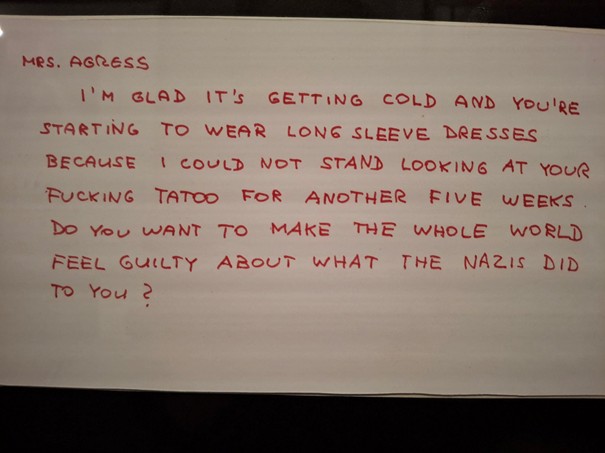 MRS. AGRESS
I'M GLAD IT'S GETTING COLD AND YOU'RE
STARTING TO WEAR LONG SLEEVE DRESSES
BECAUSE I COULD NOT STAND LOOKING AT YOUR
FUCKING TATOO FOR ANOTHER FIVE WEEKS.
DO YOU WANT TO MAKE THE WHOLE WORLD
FEEL GUILTY ABOUT WHAT THE NAZIS DID
TO YOU?